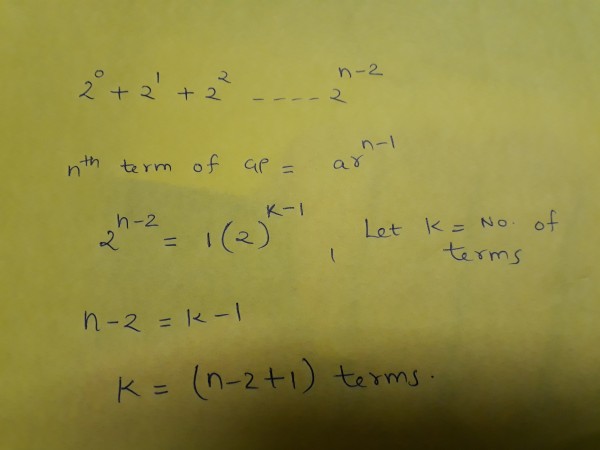 2⁰ + 2¹ + 2² ---- 2ⁿ⁻²
nth term of GP = arⁿ⁻¹
2ⁿ⁻² = 1(2)ᴷ⁻¹ , Let K = No. of terms
n-2 = k-1
K = (n-2+1) terms.